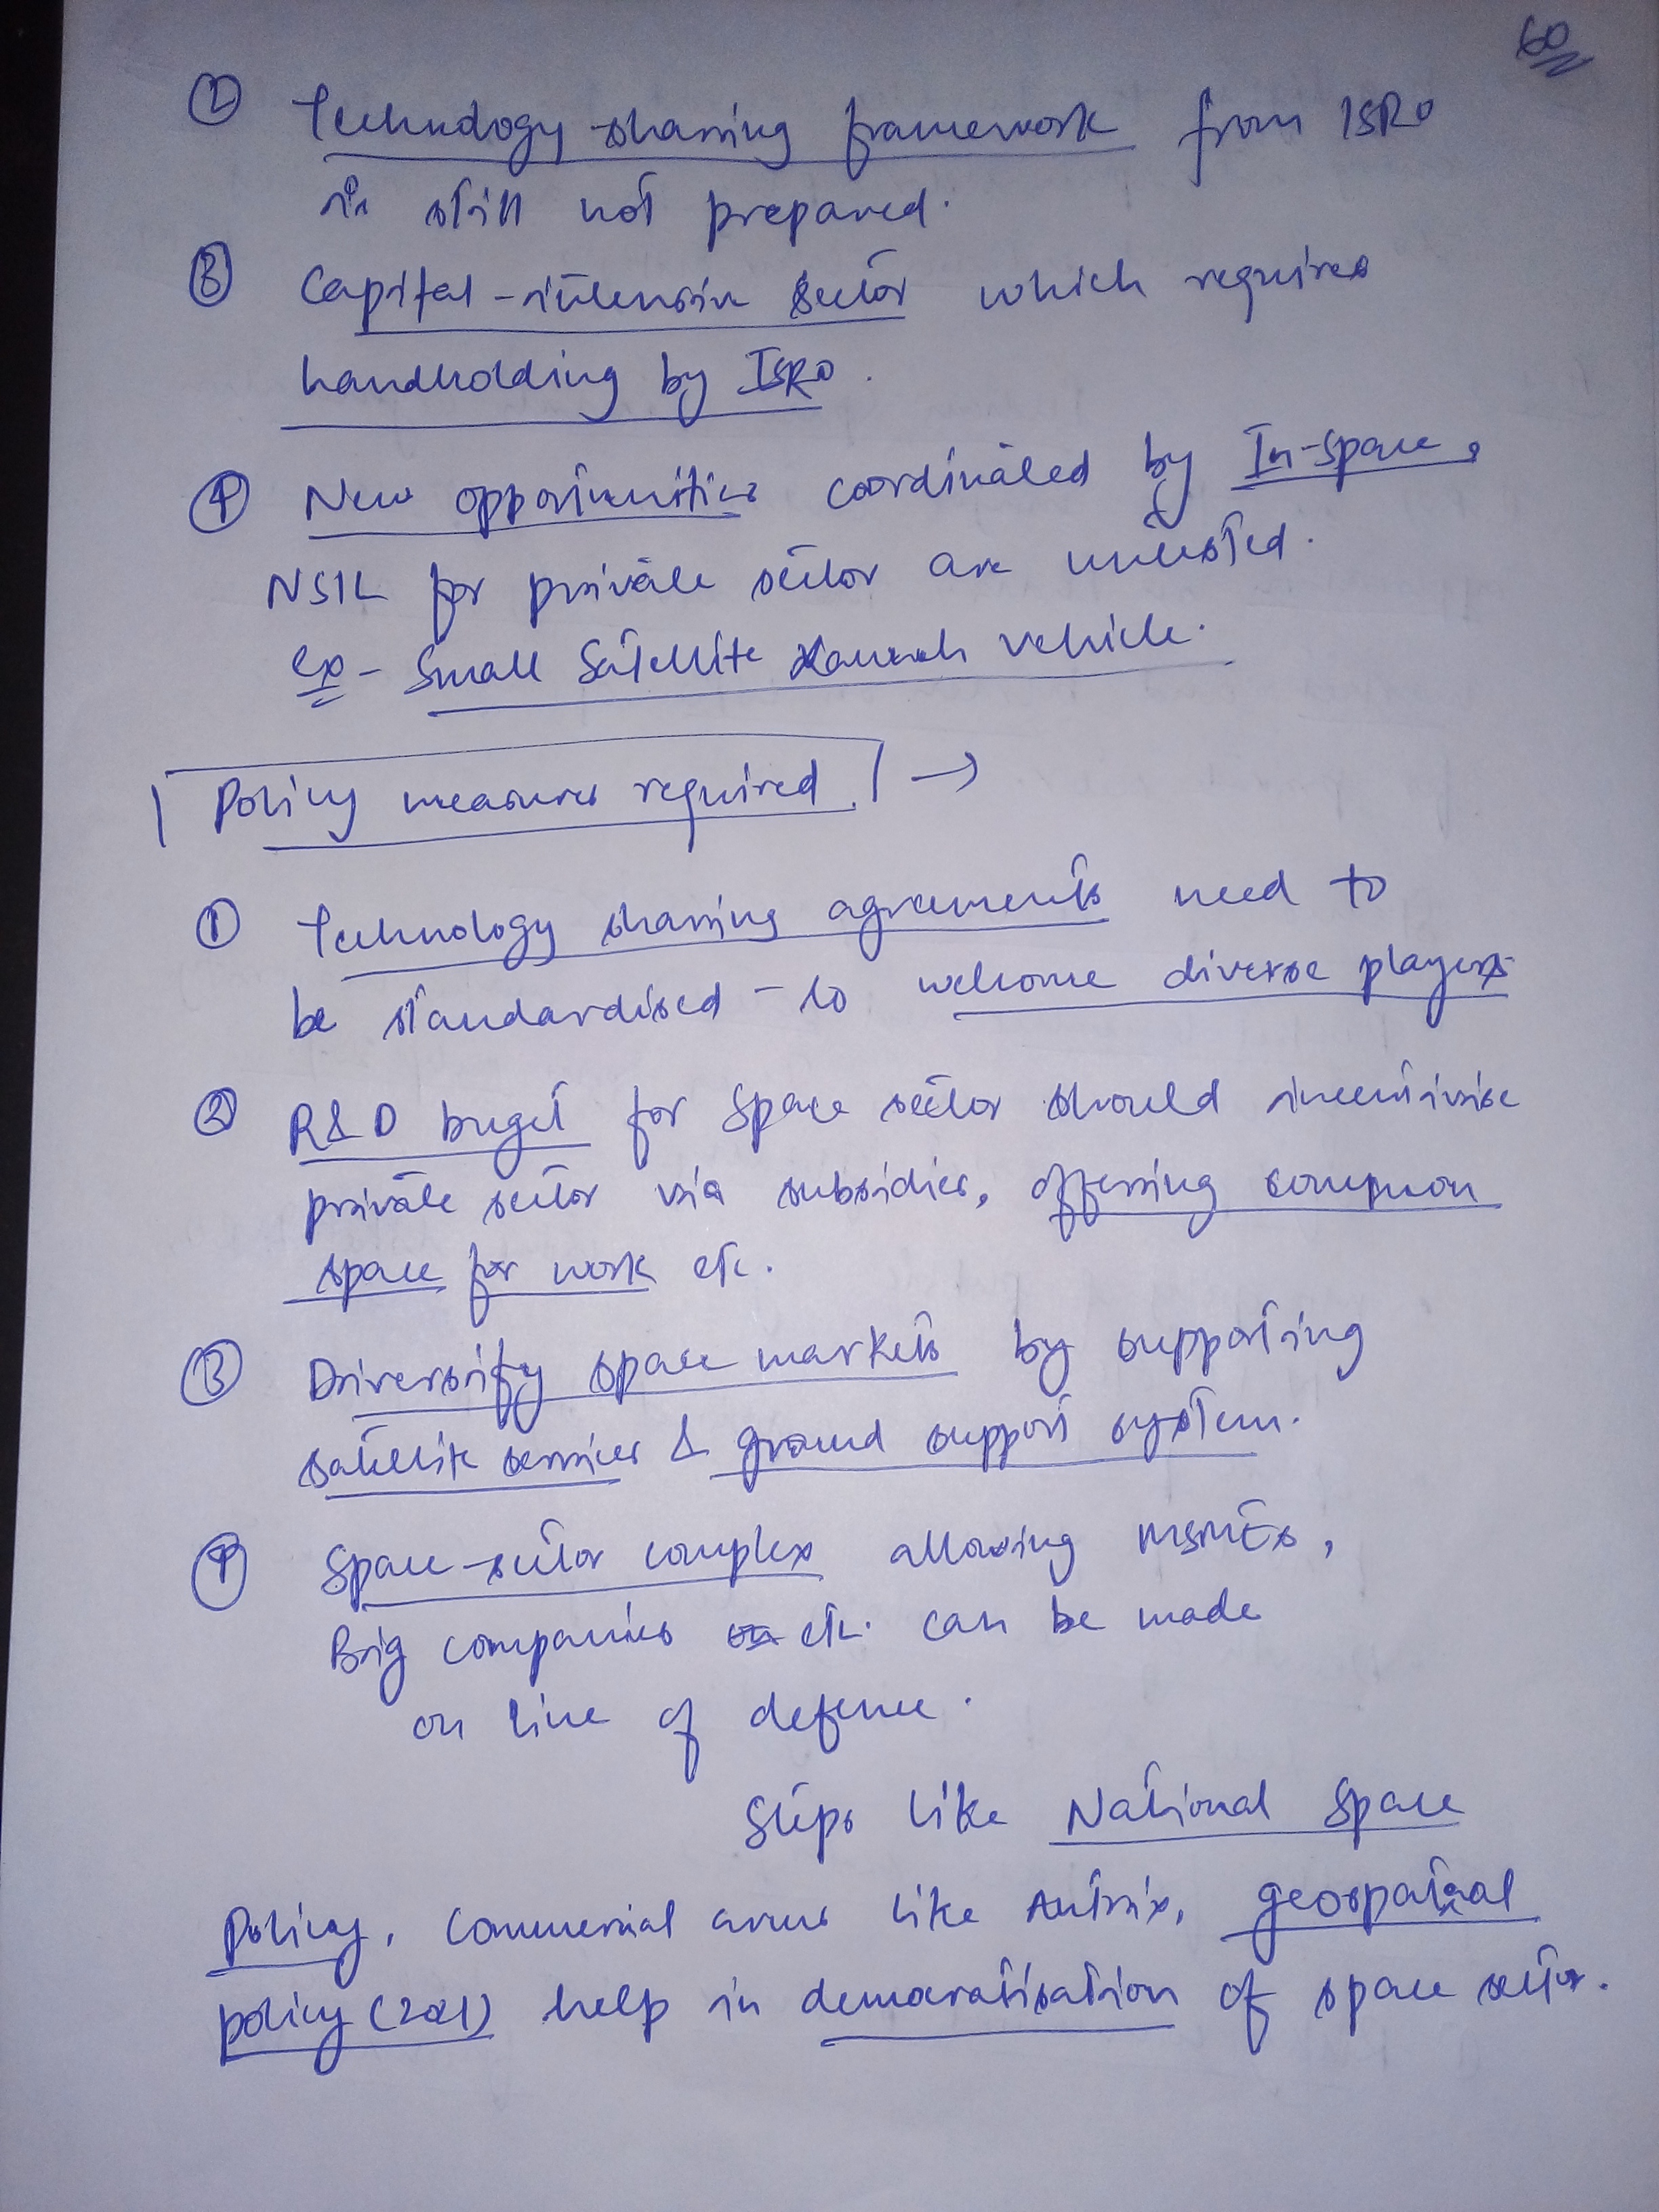 60
② Technology sharing framework from ISRO
is still not prepared.
③ Capital-intensive sector which requires
handholding by ISRO.
④ New opportunities coordinated by In-space,
NSIL for private sector are untested.
ex - Small Satellite Launch vehicle.
Policy measures required →
① Technology sharing agreements need to
be standardised - to welcome diverse players
② R&D buget for space sector should incentivise
private sector via subsidies, offering common
space for work etc.
③ Diversify space markets by supporting
satellite services & ground support system.
④ Space-sector complex allowing MSMEs,
Big companies etc. can be made
on line of defence.
Steps like National Space
Policy, Commercial arms like Antrix, geospatial
policy (2021) help in democratisation of space sector.